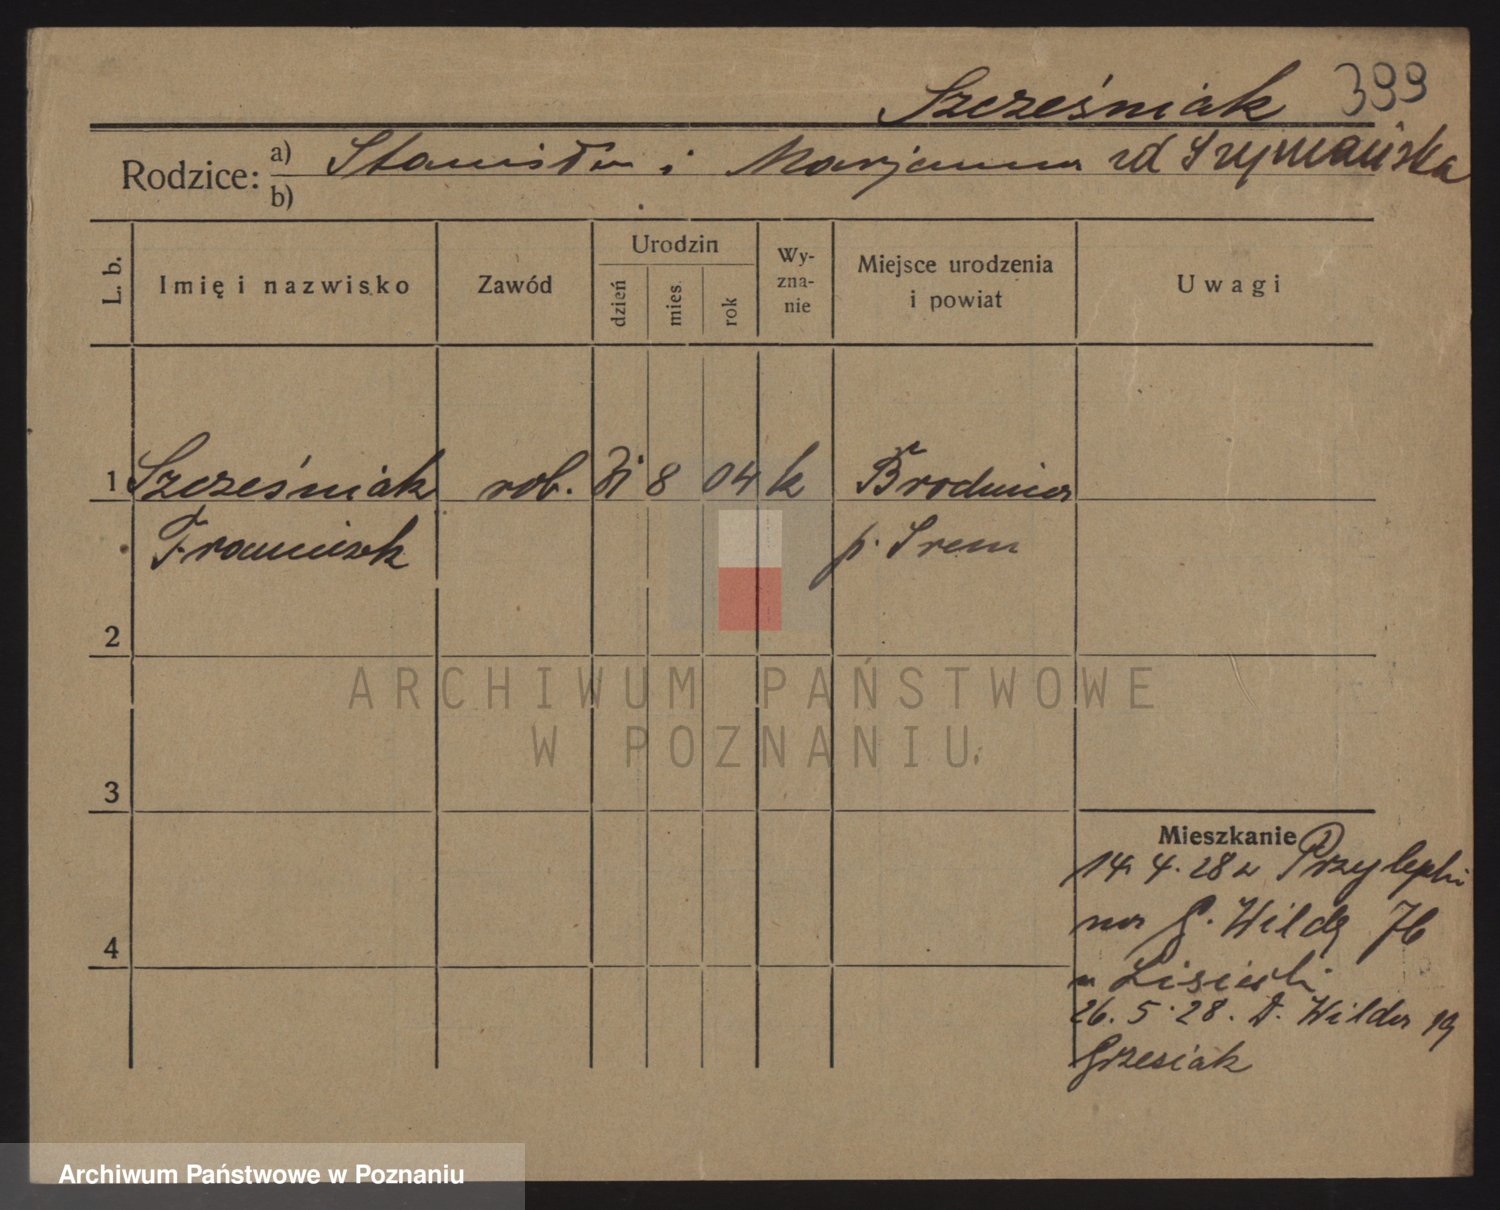 Szcześniak 399
Rodzice: a) Stanisław i Marjanna zd Szymańska
b)
L. b. Imię i nazwisko Zawód Urodzin dzień mies. rok Wy-zna-nie Miejsce urodzenia i powiat Uwagi
1 Szcześniak rob. 8 04 k Brodnica
Franciszek p. Śrem
2
ARCHIWUM PAŃSTWOWE
W POZNANIU
3
Mieszkanie
14. 4. 28 z Przylepki
na G. Wildą 76
u Lisiecki
26. 5. 28. D. Wilda 19
Grzesiak
4
Archiwum Państwowe w Poznaniu